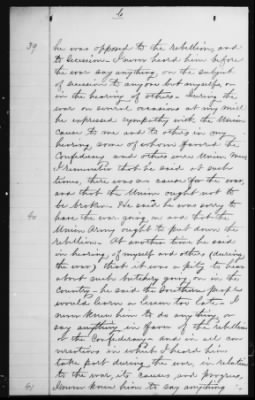 6
39 he was opposed to the rebellion, and
to secession - I never heard him before
the war say anything, on the subject
of secession to anyone but myself or
in the hearing of others - during the
war on several occasions at my mill
he expressed sympathy with the Union
cause to me and to others in my
hearing, some of whom favored the
Confederacy and others were Union men
I remember that he said at such
times, there was no cause for the war,
and that the Union ought not to
be broken - He said he was sorry to
40 have the war going on and that the
Union Army ought to put down the
rebellion. At another time he said
in hearing, of myself and others (during
the war) that it was a pity to hear
about such butchery going on in the
Country - he said the Southern people
would learn a lesson too late - I
never knew him to do anything, or
say anything in favor of the rebellion
or the Confederacy and in all con
versations in which I heard him
take part during the war, in relation
to the war, its causes and progress,
41 I never knew him to say anything